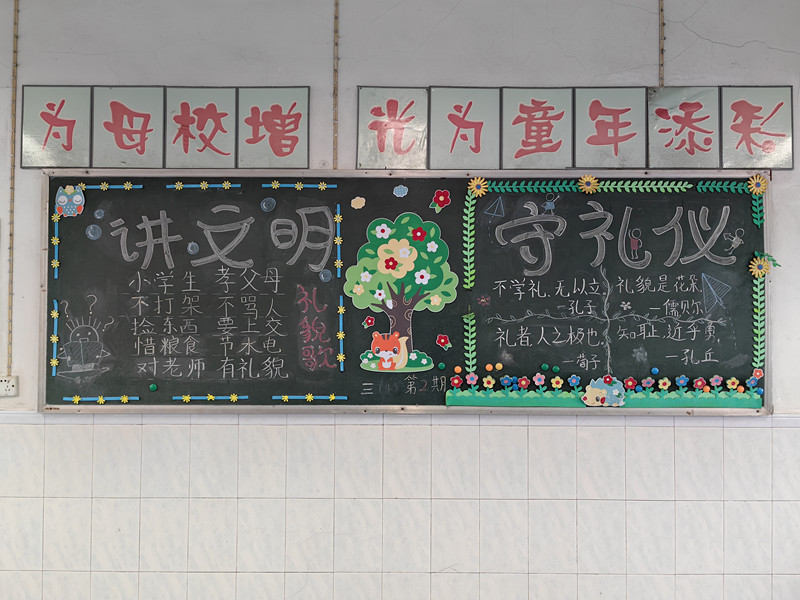 为母校增 光为童年添彩
讲文明
小学生 孝父母
不打架 不骂人
捡东西 要上交
惜粮食 节水电
对老师 有礼貌
礼貌歌
三(4) 第2期
守礼仪
不学礼,无以立
—孔子
礼貌是花朵
儒贝尔
礼者,人之极也,
—荀子
知耻,近乎勇,
—孔丘
? ?